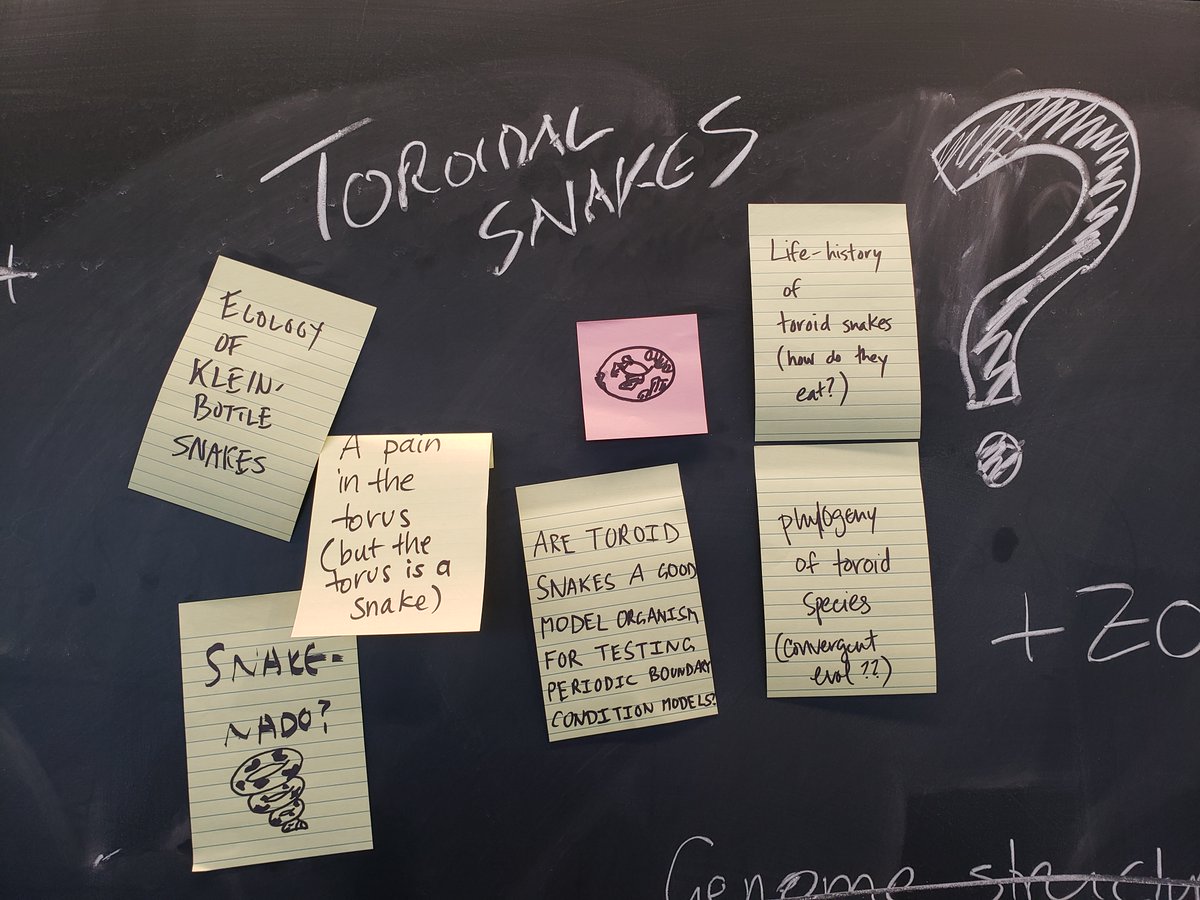 TOROIDAL
SNAKES
?
+
ECOLOGY
OF
KLEIN-
BOTTLE
SNAKES
A pain
in the
torus
(but the
torus is a
snake)
SNAKE-
NADO?
ARE TOROID
SNAKES A GOOD
MODEL ORGANISM
FOR TESTING
PERIODIC BOUNDARY
CONDITION MODELS?
Life-history
of
toroid snakes
(how do they
eat?)
phylogeny
of toroid
species
(convergent
evol ??)
+ ZO
Genome structur